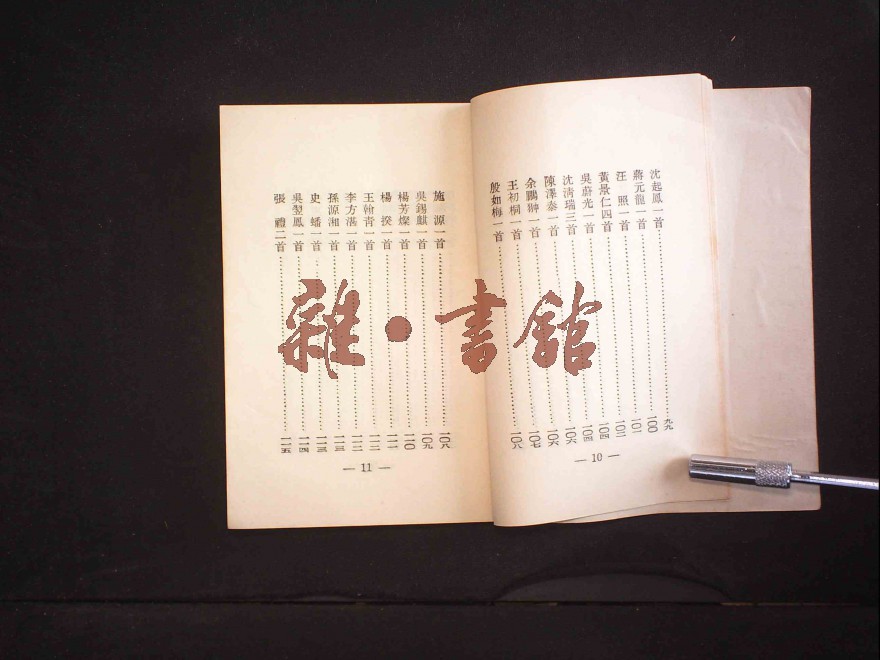 沈起鳳一首……九九
蔣元龍一首……一〇〇
汪　照一首……一〇一
黃景仁四首……一〇二
吳蔚光一首……一〇四
沈淸瑞三首……一〇四
陳澤泰一首……一〇六
余鵬翀一首……一〇六
王初桐一首……一〇七
殷如梅一首……一〇八
— 10 —
施　源一首……一〇八
吳錫麒一首……一〇九
楊芳燦一首……一一〇
楊　揆一首……一一一
王翰青一首……一一二
李方湛一首……一一二
孫源湘一首……一一三
史　蟠一首……一一三
吳翌鳳一首……一一四
張　禮二首……一一五
— 11 —
雜·書館